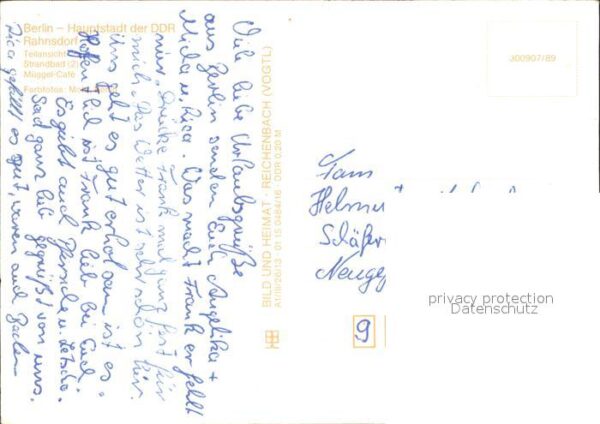 Berlin – Hauptstadt der DDR
Rahnsdorf
Teilansicht
Strandbad (2)
Müggel-Café
Farbfotos:
Viele liebe Urlaubsgrüße
aus Berlin senden Euch Angelika +
Micha u. Rica. Was macht Frank er fehlt
mir. Drücke Frank mal ganz fest für
mich. Das Wetter ist sehr schön hier.
ihns geht es gut erholsam ist es.
Hoffentlich ist Frank lieb bei Euch.
Es gibt auch Pfirsiche u. Letscho.
Seid ganz lieb gegrüßt von uns.
Rica gefällt es gut, waren auch Baden
BILD UND HEIMAT · REICHENBACH (VOGTL)
A1/89/26/13 01 15 0484/16 · DDR 0,20 M
300907/89
Fam
Helmut
Schäfer
Neuge
9
privacy protection
Datenschutz